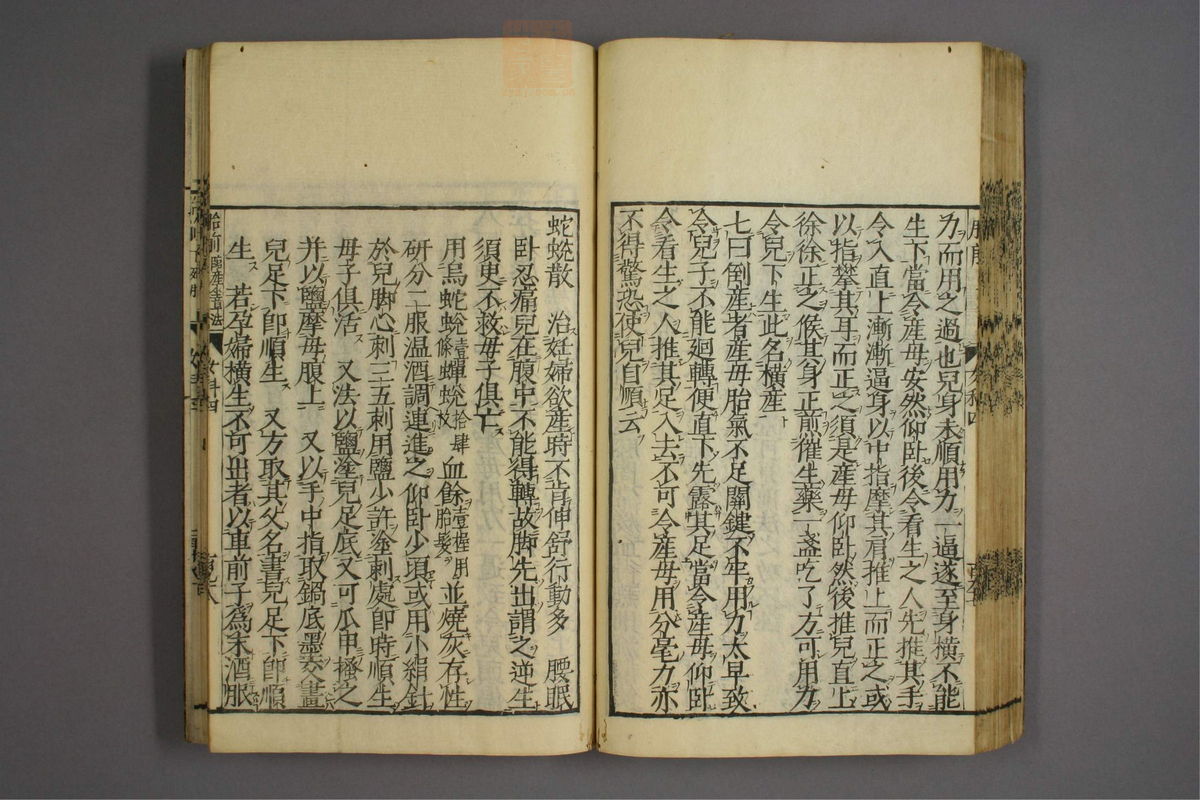 力而用之過也兒身未順用力一逼遂至身橫不能
生下當令産母安然仰卧後令看生之人先推其手
令入直上漸漸逼身以中指摩其肩推上而正之或
以指攀其耳而正之須是産母仰卧然後推兒直上
徐徐正之候其身正煎催生藥一盞吃了方可用力
令兒下生此名橫産
七曰倒産者産母胎氣不足關鍵不牢用力太早致
令兒子不能廻轉便直下先露其足當令産母仰卧
令看生之人推其足入去不可令産母用分毫力亦
不得驚恐使兒自順云
蛇蛻散 治妊婦欲産時不肯伸舒行動多 腰眠
卧忍痛兒在腹中不能得轉故脚先出謂之逆生
須臾不救母子俱亡
用烏蛇蛻壹條蟬蛻拾肆枚 血餘壹握用胎髮 並燒灰存性
研分二服温酒調連進之仰卧少項或用小絹針
於兒脚心刺三五刺用鹽少許塗刺處卽時順生
母子俱活 又法以鹽塗兒足底又可瓜甲搔之
并以鹽摩母腹上 又以手中指取鍋底墨交畫
兒足下卽順生 又方取其父名書兒足下卽順
生 若孕婦橫生不可出者以車前子爲末酒服
胎前 女科四